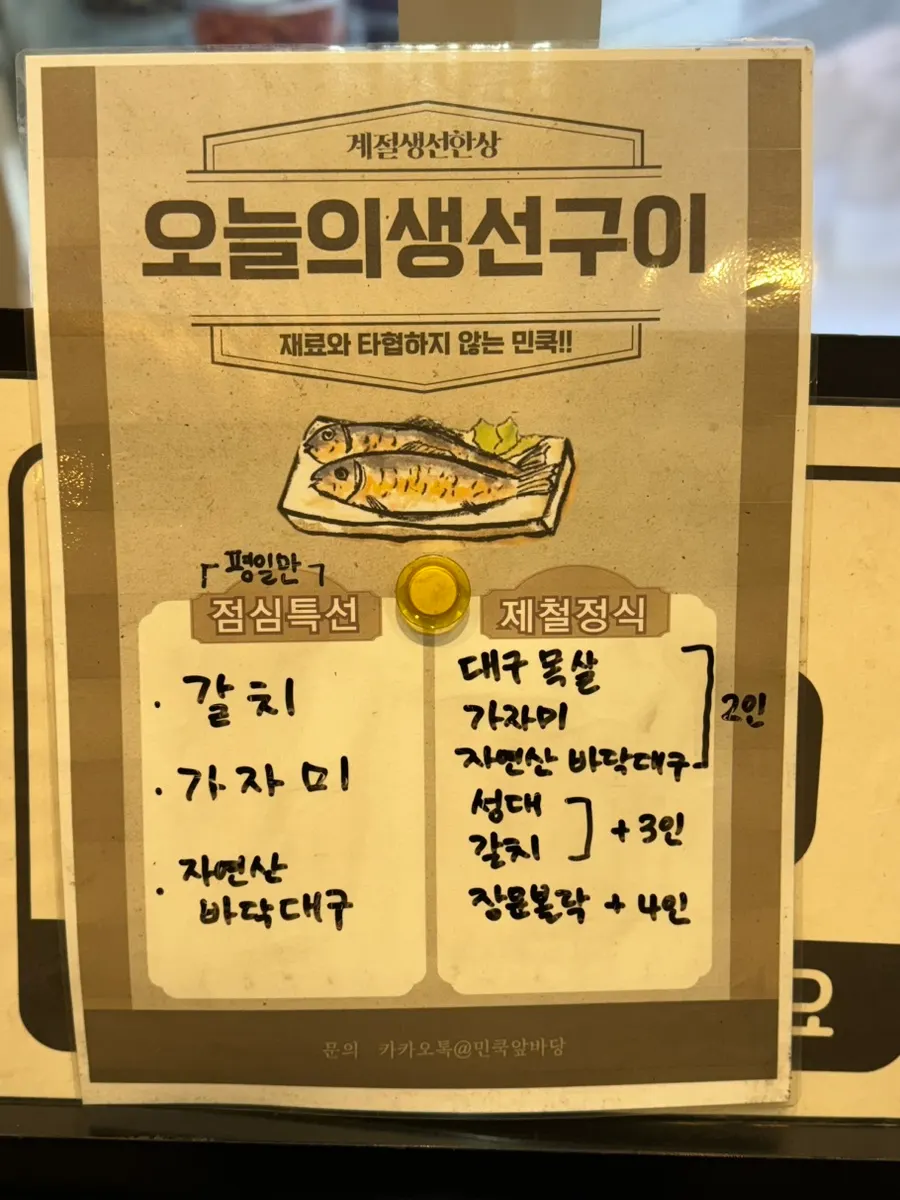 계절생선한상
오늘의생선구이
재료와 타협하지 않는 민쿡!!
평일만
점심특선
· 갈치
· 가자미
· 자연산
바닥대구
제철정식
대구 목살
가자미
자연산 바닥대구
2인
성대
갈치
+ 3인
장문볼락 + 4인
문의 카카오톡@민쿡앞바당